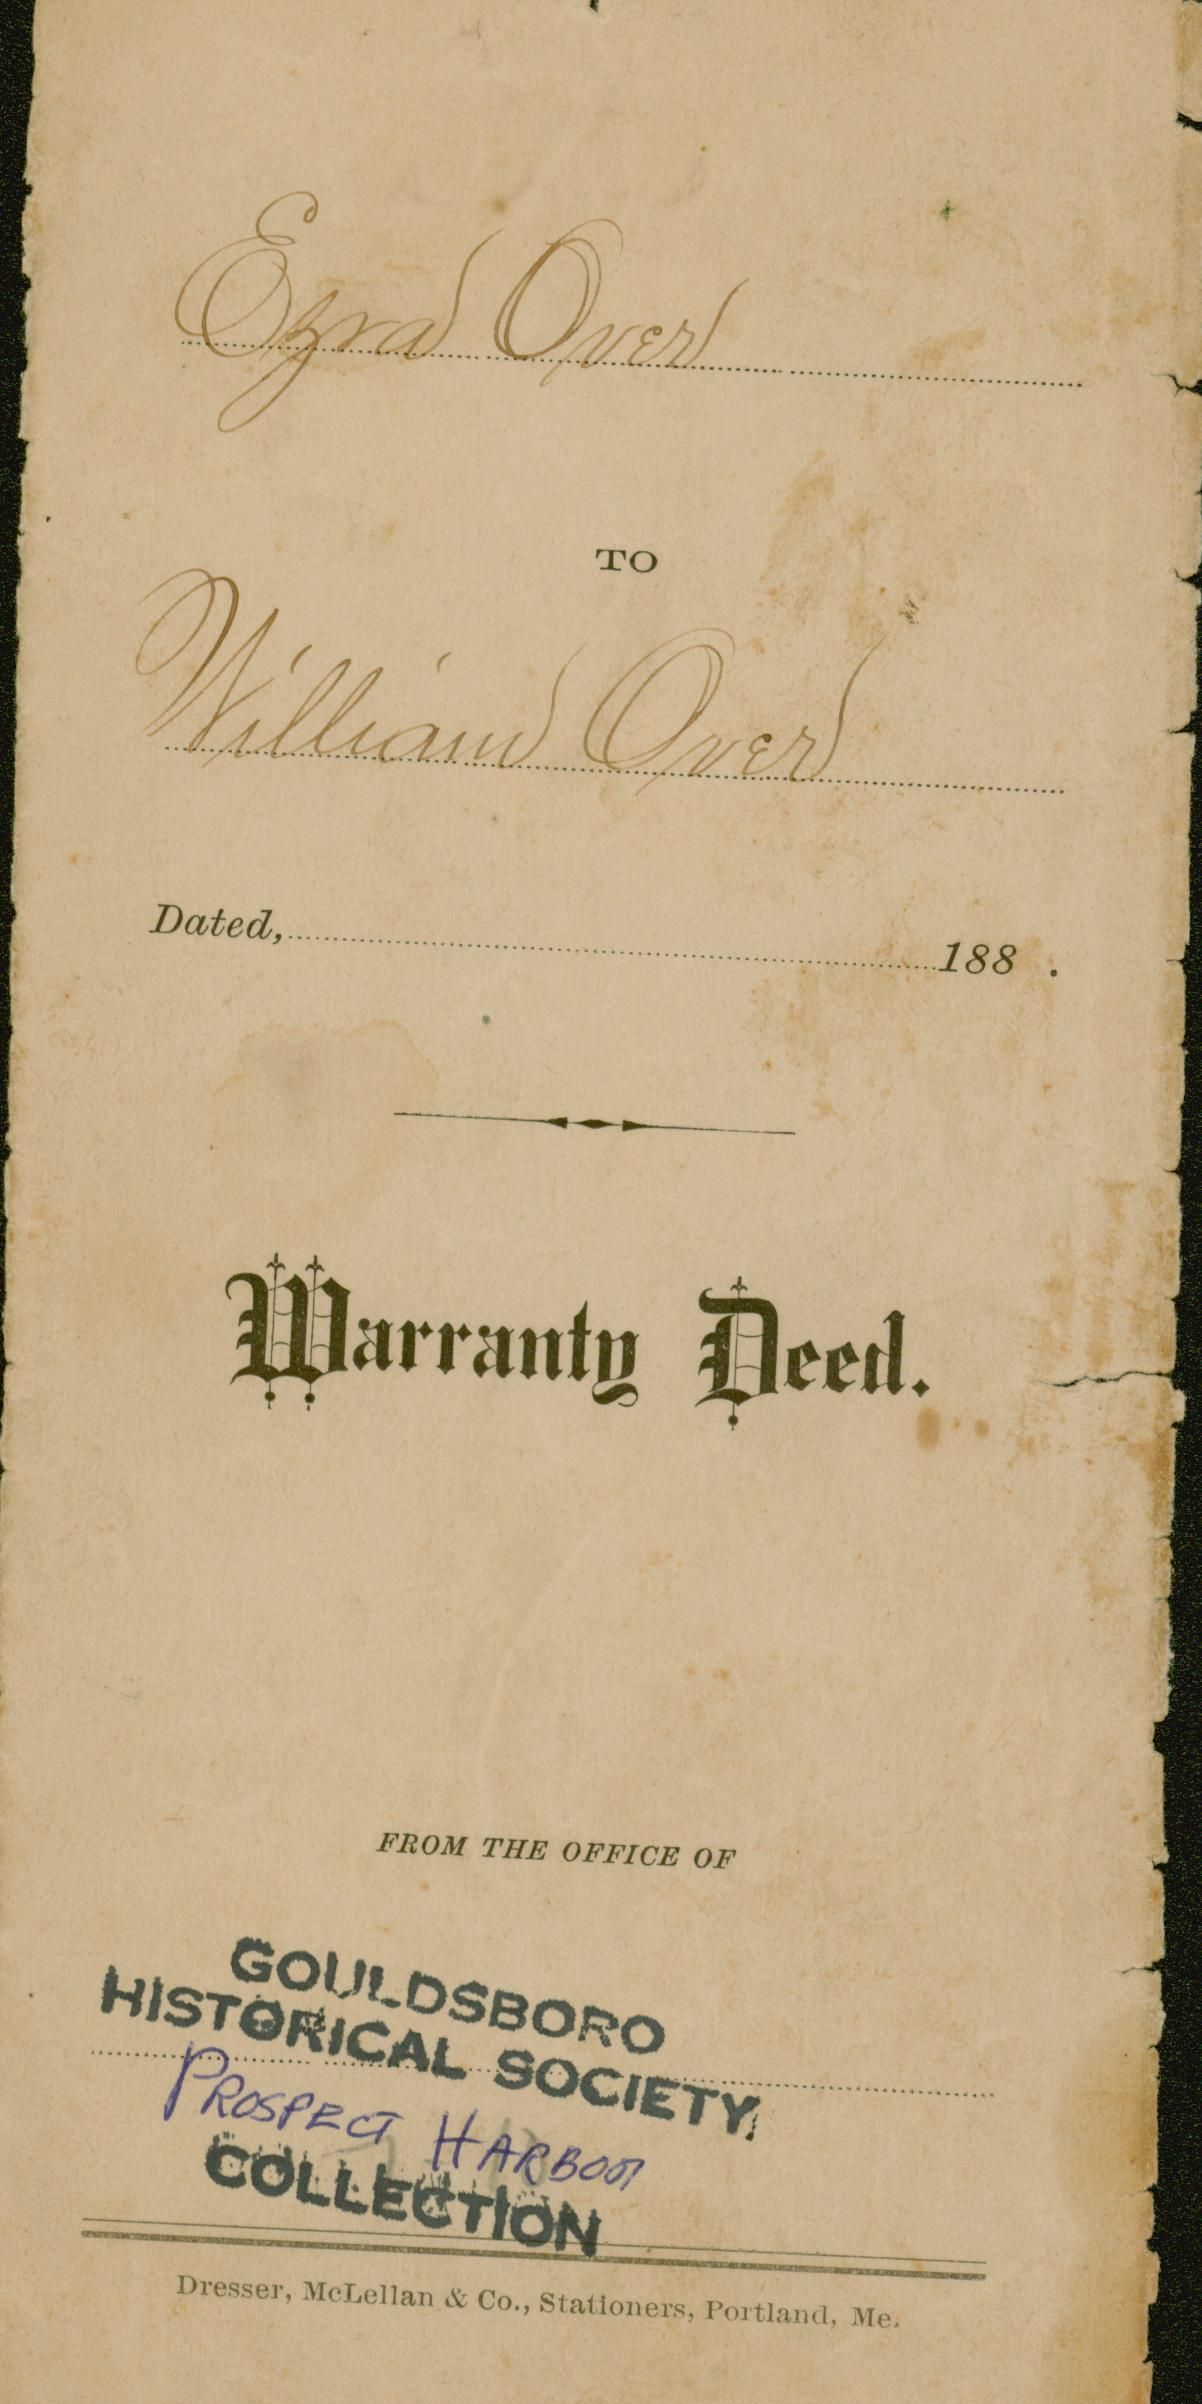 Ezra Over
TO
William Over
Dated, 188 .
Warranty Deed.
FROM THE OFFICE OF
GOULDSBORO
HISTORICAL SOCIETY
PROSPECT HARBOR
COLLECTION
Dresser, McLellan & Co., Stationers, Portland, Me.